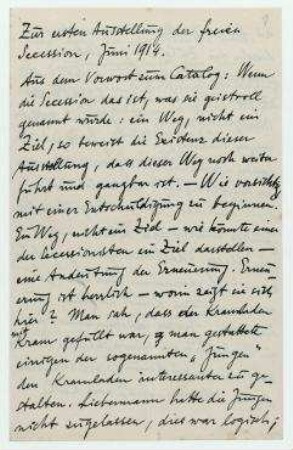 1
Zur ersten Ausstellung der freien
Secession, Juni 1914.
Aus dem Vorwort zum Catalog: Wenn
die Secession das ist, was sie geistvoll
genannt wurde: ein Weg, nicht ein
Ziel, so beweist die Existenz dieser
Ausstellung, dass dieser Weg noch weiter
führt und gangbar ist. — Wie vorsichtig
mit einer Entschuldigung zu beginnen.
Ein Weg, nicht ein Ziel — wie könnte eine
der Secessionsten ein Ziel darstellen —
eine Andeutung der Erneuerung. Erneu-
erung ist herrlich — worin zeigt sie sich
hier? Man sah, dass der Kramladen
mit Kram gefüllt war, man gestattete
einigen der sogenannten "Jungen"
den Kramladen interessanter zu ge-
stalten. Liebermann hatte die Jungen
nicht zugelassen, dies war logisch;